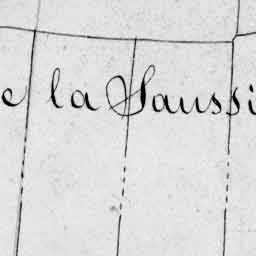 e la Saussi